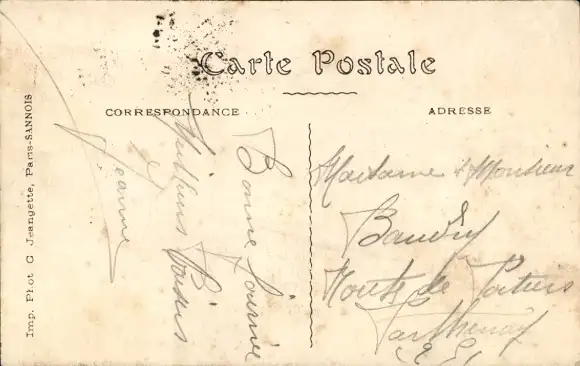 Carte Postale
CORRESPONDANCE
ADRESSE
Bonne Journée
Meilleurs Baisers
Jeanne
Madame & Monsieur
Baudry
Route de Poitiers
Parthenay
Imp. Phot C Jeangette, Paris-SANNOIS